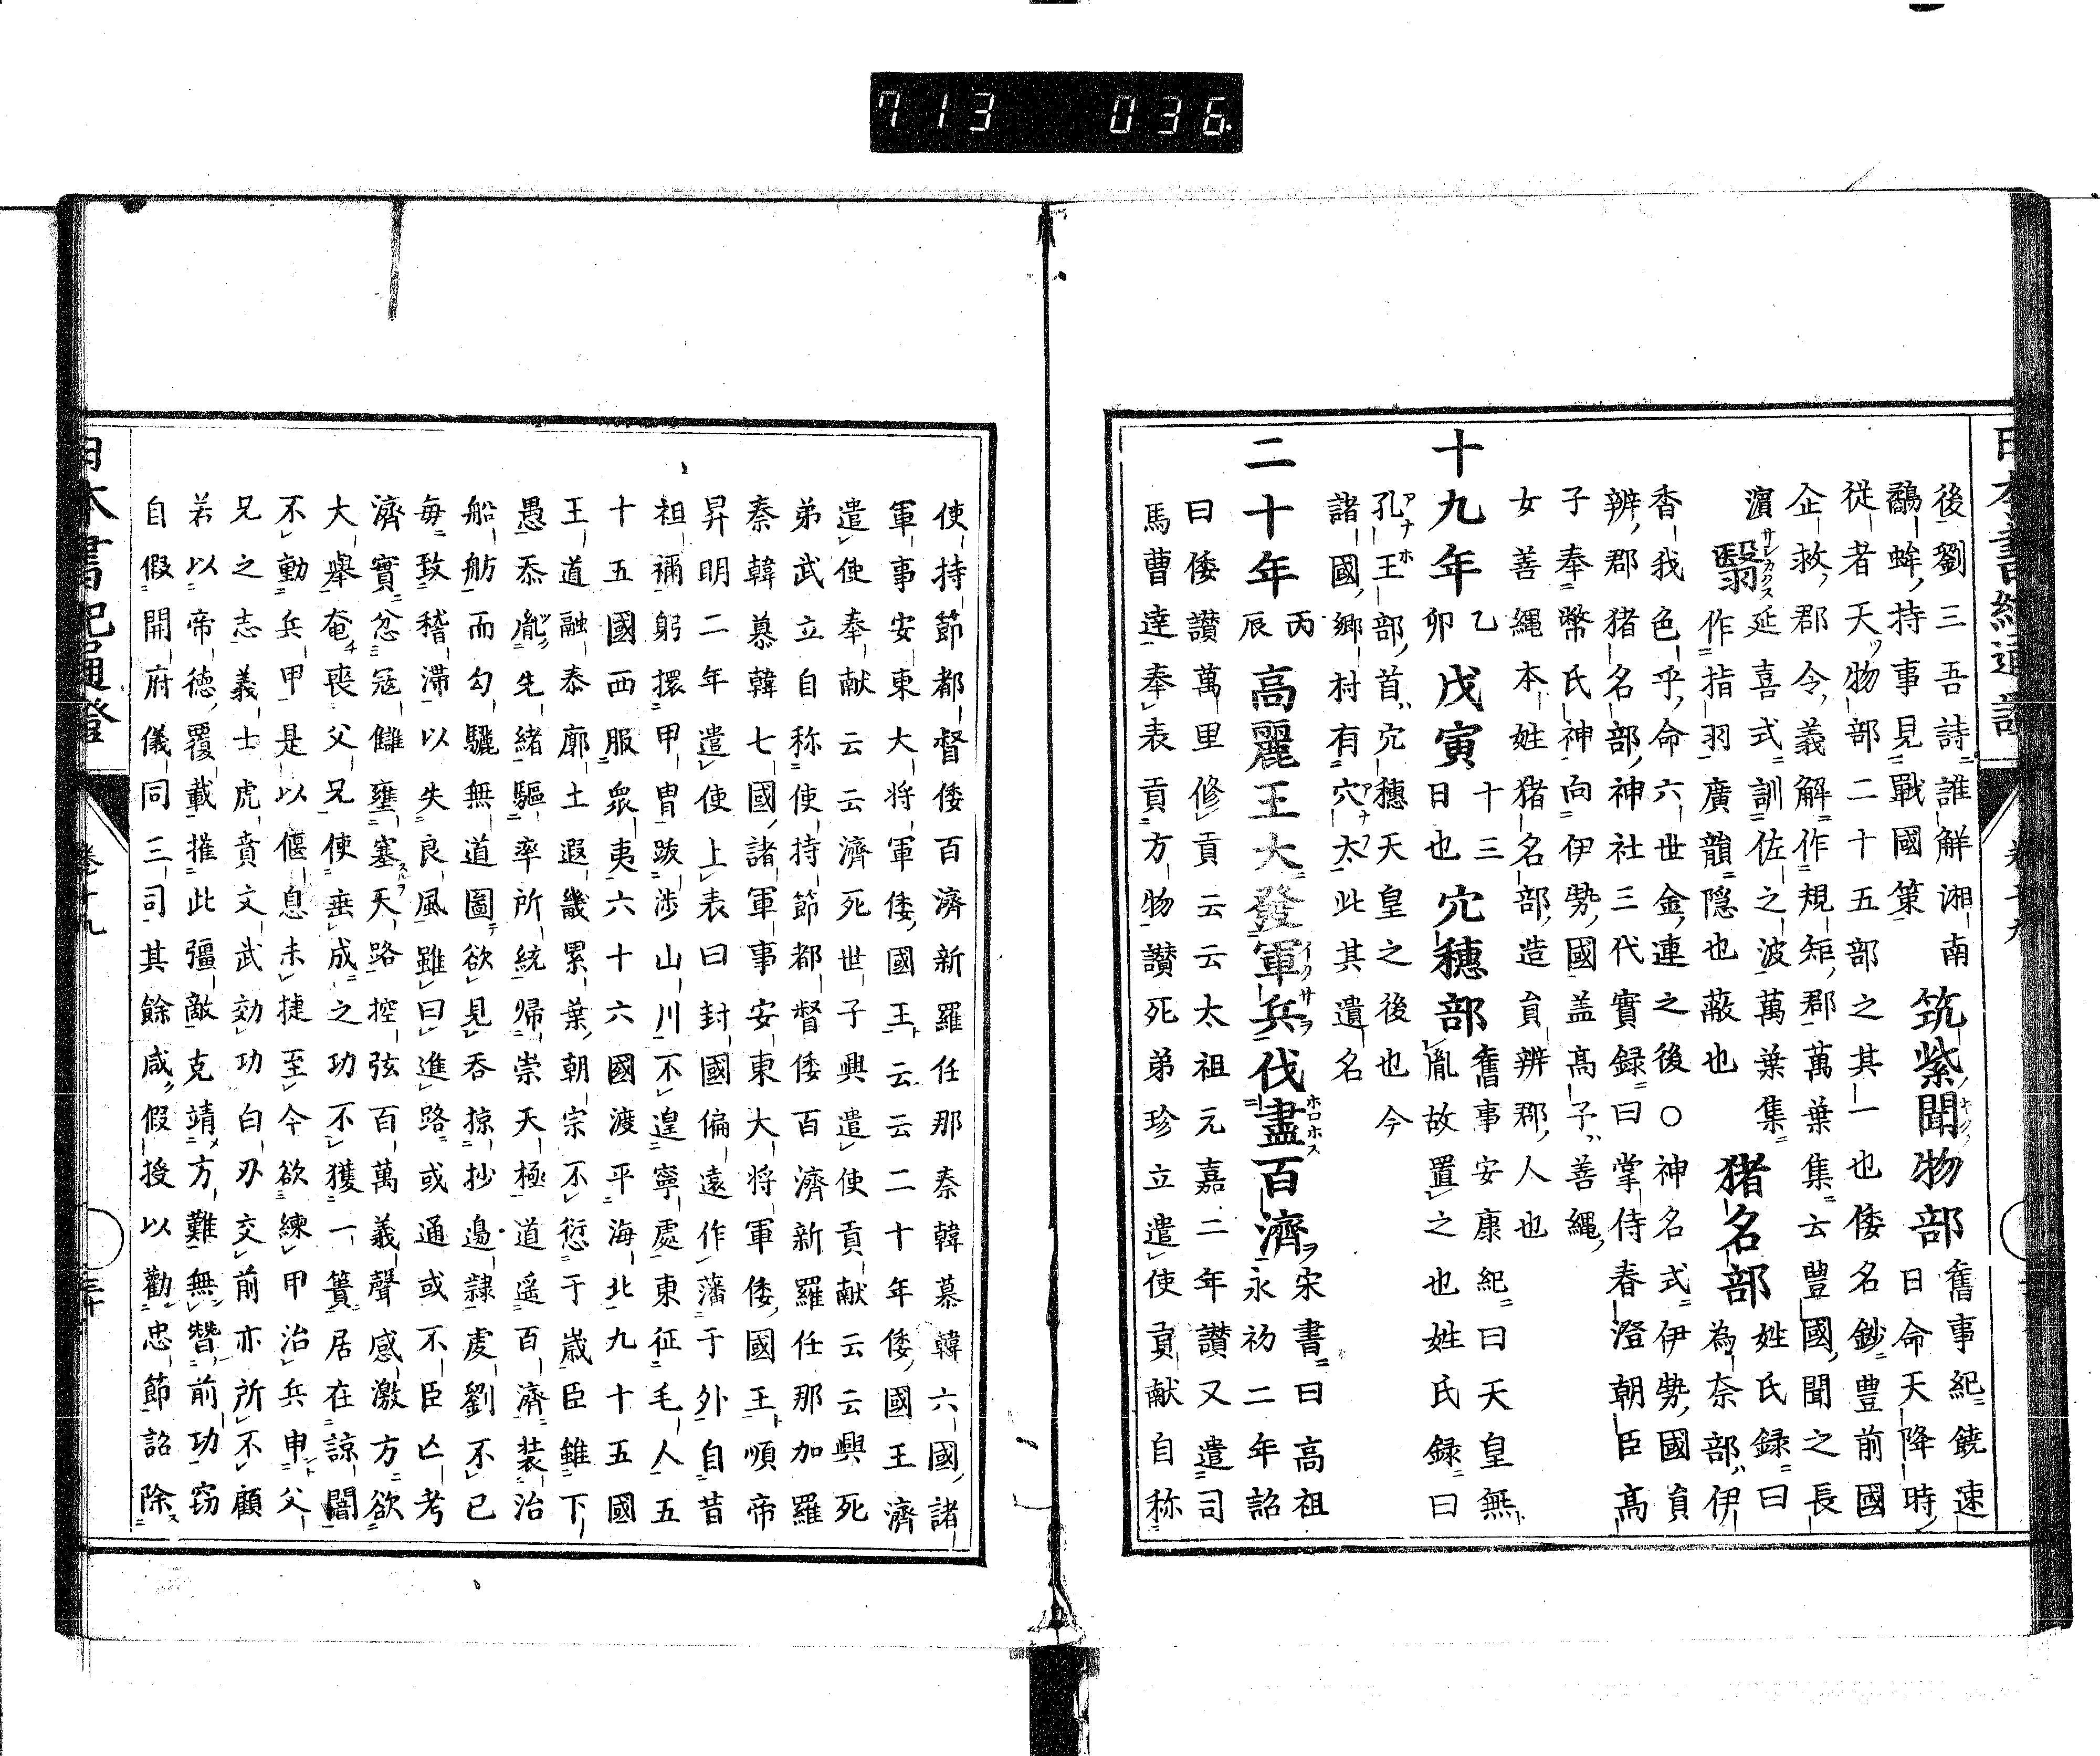 713 036
後劉三吾詩誰解湘南
鷸蚌持事見戰國策
筑紫聞物部
舊事紀饒速
日命天降時
従者天物部二十五部之其一也倭名鈔豊前國
企救郡令義解作規矩郡萬葉集云豊國聞之長
濵
翳
サシカクス
延喜式訓佐之波萬葉集
作指羽廣韻隠也蔽也
猪名部
姓氏録曰
為奈部伊
香我色乎命六世金連之後〇神名式伊勢國員
辨郡猪名部神社三代實録曰掌侍春澄朝臣高
子奉幣氏神向伊勢國盖高子善縄
女善縄本姓猪名部造員辨郡人也
十九年
乙
卯
戊寅
十三
日也
穴穂部
舊事安康紀曰天皇無
胤故置之也姓氏録曰
孔王部首穴穂天皇之後也今
諸國郷村有穴太此其遺名
二十年
丙
辰
高麗王大發軍兵伐盡百濟
宋書曰高祖
永初二年詔
曰倭讃萬里修貢云云太祖元嘉二年讃又遣司
馬曹達奉表貢方物讃死弟珍立遣使貢献自称
使持節都督倭百濟新羅任那秦韓慕韓六國諸
軍事安東大将軍倭國王云云二十年倭國王濟
遣使奉献云云濟死世子興遣使貢献云云興死
弟武立自称使持節都督倭百濟新羅任那加羅
秦韓慕韓七國諸軍事安東大将軍倭國王順帝
昇明二年遣使上表曰封國偏遠作藩于外自昔
祖禰躬擐甲冑跋渉山川不遑寧處東征毛人五
十五國西服衆夷六十六國渡平海北九十五國
王道融泰廓土遐畿累葉朝宗不愆于歳臣雖下
愚忝胤先緒驅率所統歸崇天極道遥百濟装治
船舫而勾驪無道圖欲見呑掠抄邉隷虔劉不已
毎致稽滞以失良風雖曰進路或通或不臣亡考
濟實忿冦讎壅塞天路控弦百萬義聲感激方欲
大舉奄喪父兄使垂成之功不獲一簣居在諒闇
不動兵甲是以偃息未捷至今欲練甲治兵申父
兄之志義士虎賁文武効功白刃交前亦所不顧
若以帝德覆載摧此彊敵克靖方難無朁前功窃
自假開府儀同三司其餘咸假授以勸忠節詔除
日本書紀通證
卷十九
三十